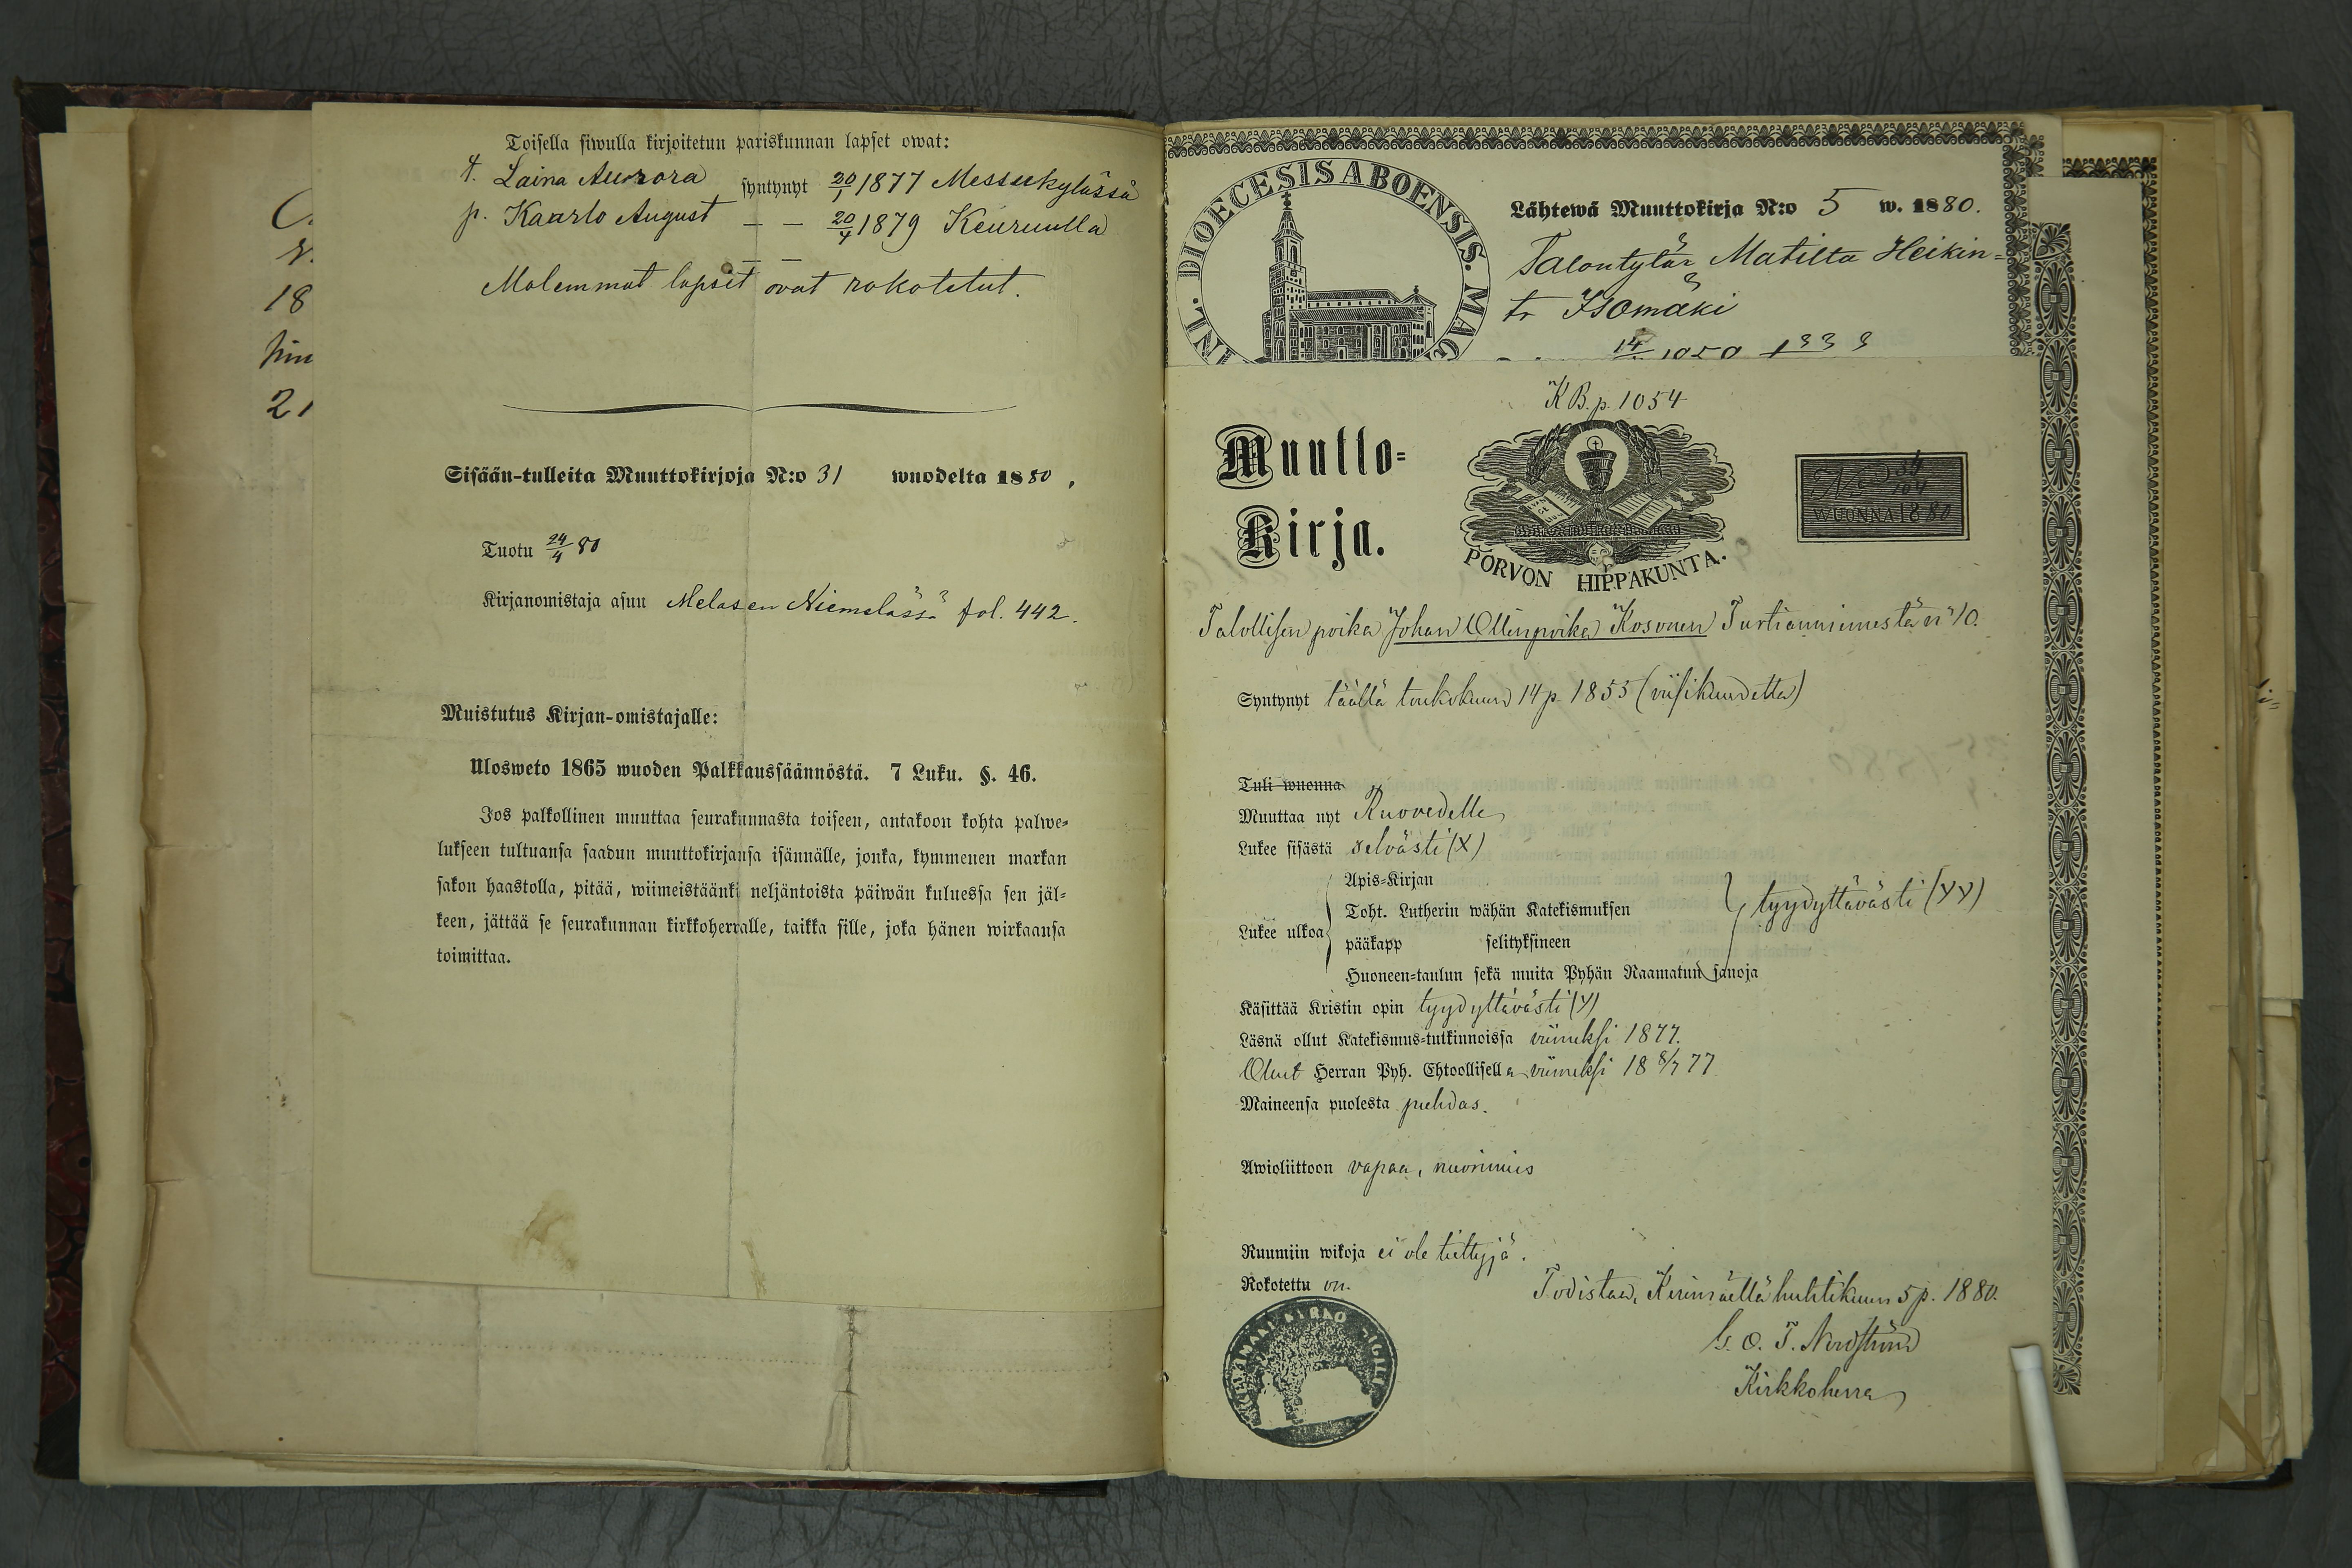 Toisella siwulla kirjoitetun pariskunnan lapset owat:
t. Laina Aurora syntynyt 20/1 1877 Messukylässä
p. Kaarlo August — — 20/4 1879 Keuruulla
— —
Molemmat lapset ovat rokotetut.
Sisään-tulleita Muuttokirjoja N:o 31 wuodelta 1880.
Tuotu 24/4 80
Kirjanomistaja asuu Melasen Niemelässä fol. 442.
Muistutus Kirjan-omistajalle:
Ulosweto 1865 wuoden Palkkaussäännöstä. 7 Luku. §. 46.
Jos palkollinen muuttaa seurakunnasta toiseen, antakoon kohta palwe=
lukseen tultuansa saadun muuttokirjansa isännälle, jonka, kymmenen markan
sakon haastolla, pitää, wiimeistäänki neljäntoista päiwän kuluessa sen jäl=
keen, jättää se seurakunnan kirkkoherralle, taikka sille, joka hänen wirkaansa
toimittaa.
18
21
DIOECESIS ABOENSIS. MAG
INT.
Lähtewä Muuttokirja N:o 5 w. 1880.
Talontytär Matilta Heikin=
tr Isomäki
KB. p. 1054
Muutto=
Kirja.
PORVON HIPPAKUNTA.
No 34/104
WUONNA 1880
Talollisen poika Johan Ollinpoika Kosonen Turtianniemestä n:o 10.
Syntynyt täällä toukokuun 14 p. 1855 (viisikuudetta)
Tuli wuonna
Muuttaa nyt Ruovedelle
Lukee sisästä selvästi (X)
Apis=Kirjan
Toht. Lutherin wähän Katekismuksen
Lukee ulkoa tyydyttävästi (YY)
pääkapp selityksineen
Huoneen=taulun sekä muita Pyhän Raamatun sanoja
Käsittää Kristin opin tyydyttävästi (Y)
Läsnä ollut Katekismus=tutkinnoissa viimeksi 1877.
Ollut Herran Pyh. Ehtoollisella viimeksi 18 8/7 77
Maineensa puolesta puhdas.
Awioliittoon vapaa, nuorimies
Ruumiin wikoja ei ole tiettyjä.
Rokotettu on.
Todistaa, Kerimäellä huhtikuun 5 p. 1880.
G. O. T. Nordstrand
Kirkkoherra